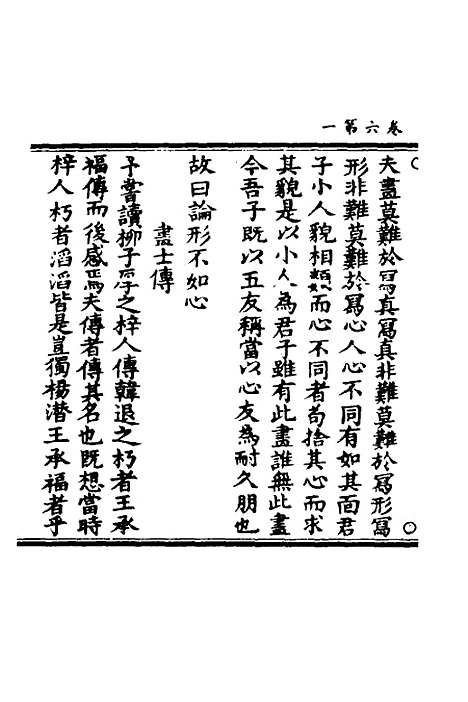 卷六第一
夫畫莫難於寫真寫真非難莫難於寫形寫
形非難莫難於寫心人心不同有如其面君
子小人貌相類而心不同者苟捨其心而求
其貌是以小人為君子雖有此畫誰無此畫
今吾子既以五友稱當以心友為耐久朋也
故曰論形不如心
畫士傳
予嘗讀柳子厚之梓人傳韓退之朽者王承
福傳而後感焉夫傳者傳其名也既想當時
梓人朽者滔滔皆是豈獨楊潛王承福者乎